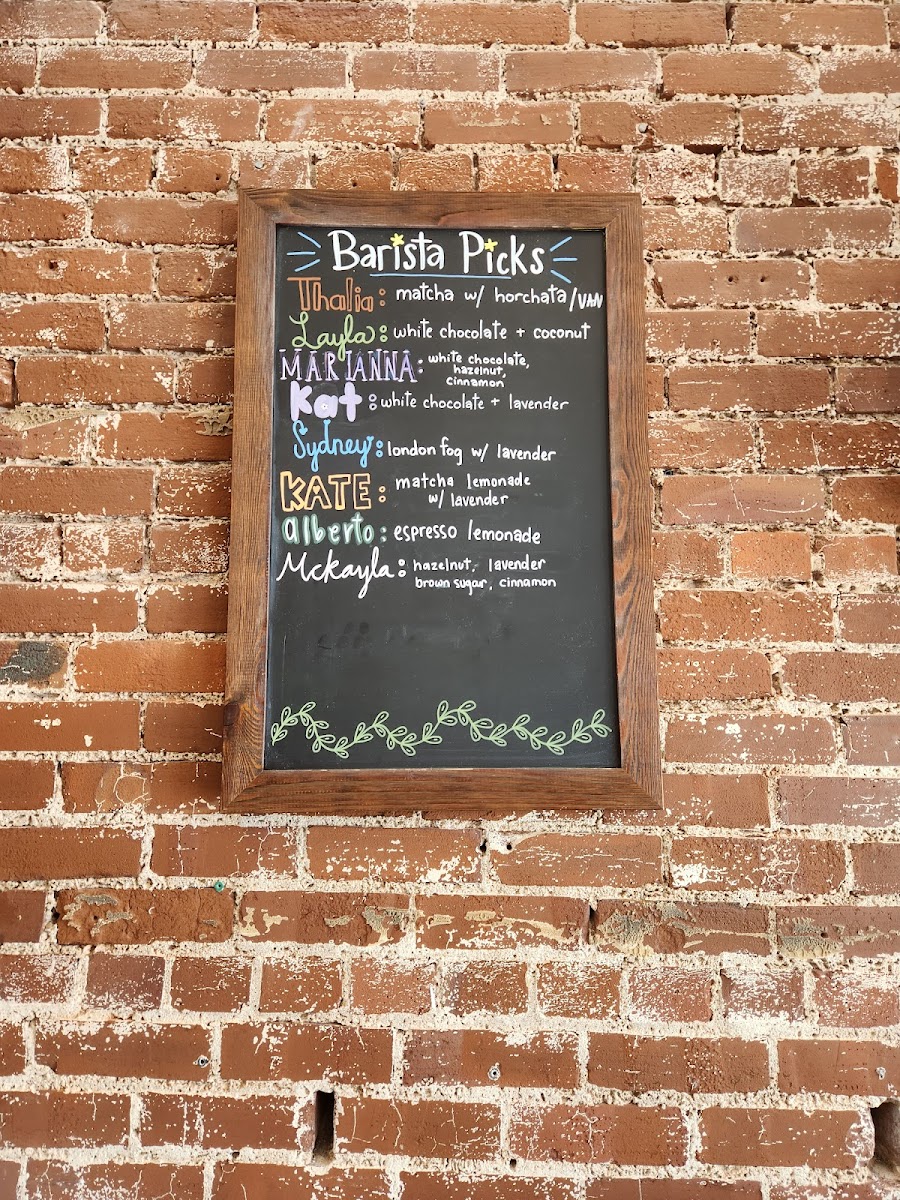 Barista Picks
Thalia: matcha w/ horchata/VAN
Layla: white chocolate + coconut
MARIANNA: white chocolate,
hazelnut,
cinnamon
Kat: white chocolate + lavender
Sydney: london fog w/ lavender
KATE: matcha lemonade
w/ lavender
alberto: espresso lemonade
Mckayla: hazelnut, lavender
brown sugar, cinnamon